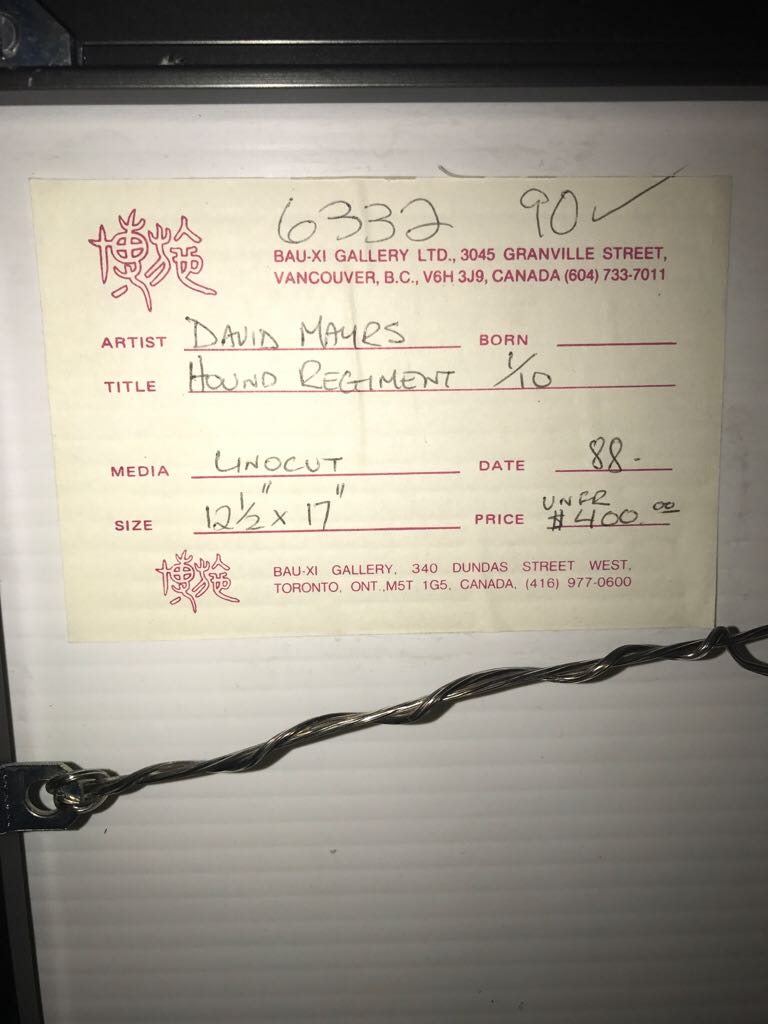 6332 90 ✓
博施
BAU-XI GALLERY LTD., 3045 GRANVILLE STREET,
VANCOUVER, B.C., V6H 3J9, CANADA (604) 733-7011
ARTIST DAVID MAYRS BORN
TITLE HOUND REGIMENT 1/10
MEDIA LINOCUT DATE 88-
SIZE 12 1/2" x 17" PRICE UNFR $400.00
博施
BAU-XI GALLERY, 340 DUNDAS STREET WEST,
TORONTO, ONT., M5T 1G5, CANADA, (416) 977-0600